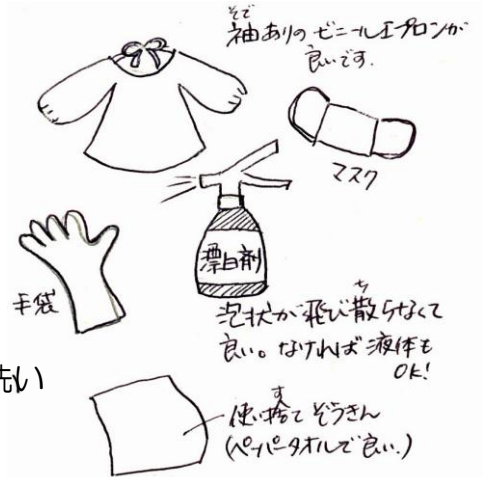 そで
袖ありのビニールエプロンが
良いです.
マスク
漂白剤
手袋
ち
泡状が飛び散らなくて
良い。なければ液体も
OK!
洗い
す
使い捨てぞうきん
(ペーパータオルで良い.)